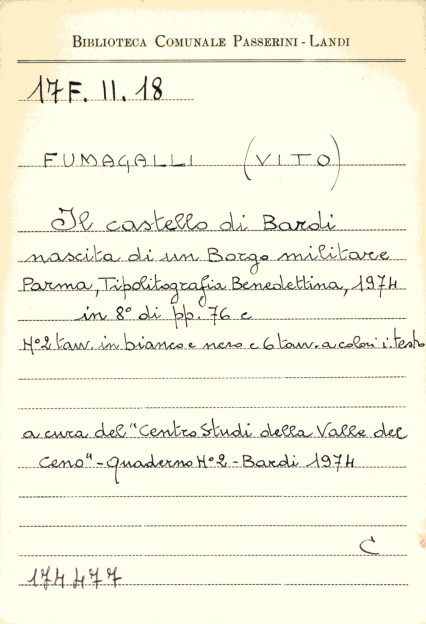 BIBLIOTECA COMUNALE PASSERINI - LANDI
17F. II. 18
FUMAGALLI (VITO)
Il castello di Bardi
nascita di un Borgo militare
Parma, Tipolitografia Benedettina, 1974
in 8° di pp. 76 e
N°2 tav. in bianco e nero e 6 tav. a colori i. testo
a cura del "Centro Studi della Valle del
Ceno" - Quaderno N°2 - Bardi 1974
C
174477